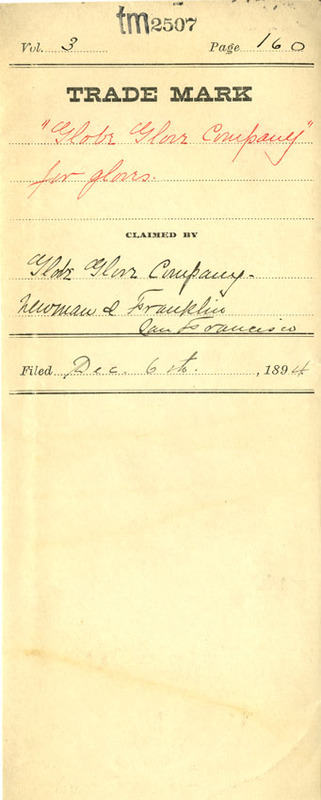 tm2507
Vol. 3 Page 160
TRADE MARK
"Globe Glove Company"
for gloves.
CLAIMED BY
Globe Glove Company.
Newman & Franklin
San Francisco
Filed Dec. 6th. , 1894